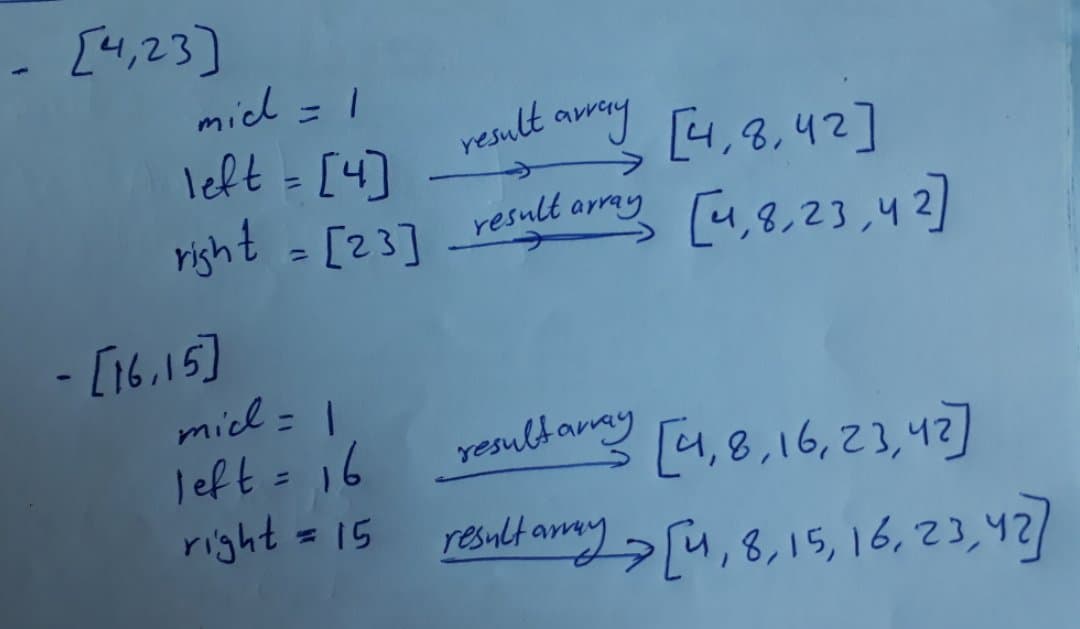 - [4,23]
mid = 1
left = [4] result array [4,8,42]
right = [23] result array [4,8,23,42]
- [16,15]
mid = 1
left = 16 result array [4,8,16,23,42]
right = 15 result array [4,8,15,16,23,42]